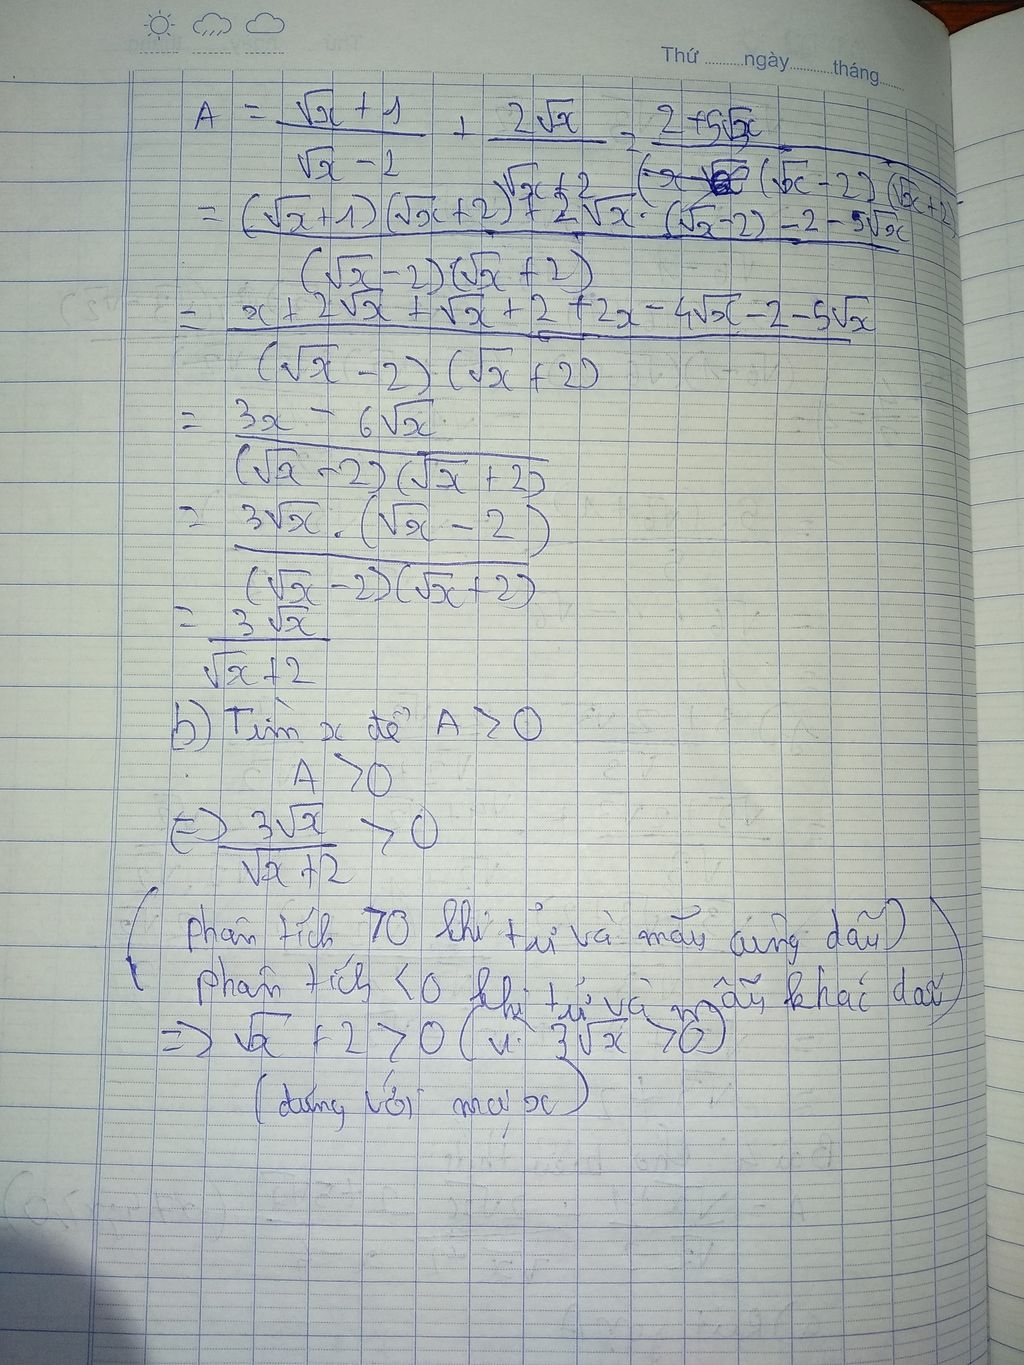 Thứ ..........ngày...........tháng......
A = (√x + 1)/(√x - 2) + (2√x)/(√x + 2) - (2 + 5√x)/((√x - 2)(√x + 2))
= ((√x + 1)(√x + 2) + 2√x . (√x - 2) - 2 - 5√x)/((√x - 2)(√x + 2))
= (x + 2√x + √x + 2 + 2x - 4√x - 2 - 5√x)/((√x - 2)(√x + 2))
= (3x - 6√x)/((√x - 2)(√x + 2))
= (3√x . (√x - 2))/((√x - 2)(√x + 2))
= (3√x)/(√x + 2)
b) Tìm x để A > 0
A > 0
<=> (3√x)/(√x + 2) > 0
(phân tích >0 khi tử và mẫu cùng dấu)
phân tích <0 khi tử và mẫu khác dấu)
=> √x + 2 > 0 (vì 3√x > 0)
(đúng với mọi x)